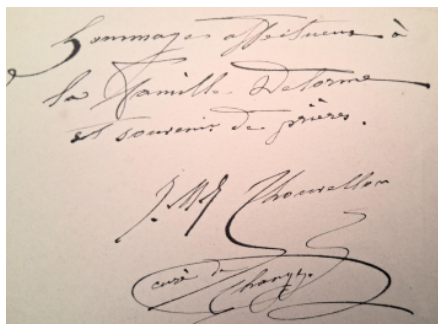 hommage affectueux à
la famille Delorme
et souvenir de prières.
J. M. Chouvellon
curé de
Changy.